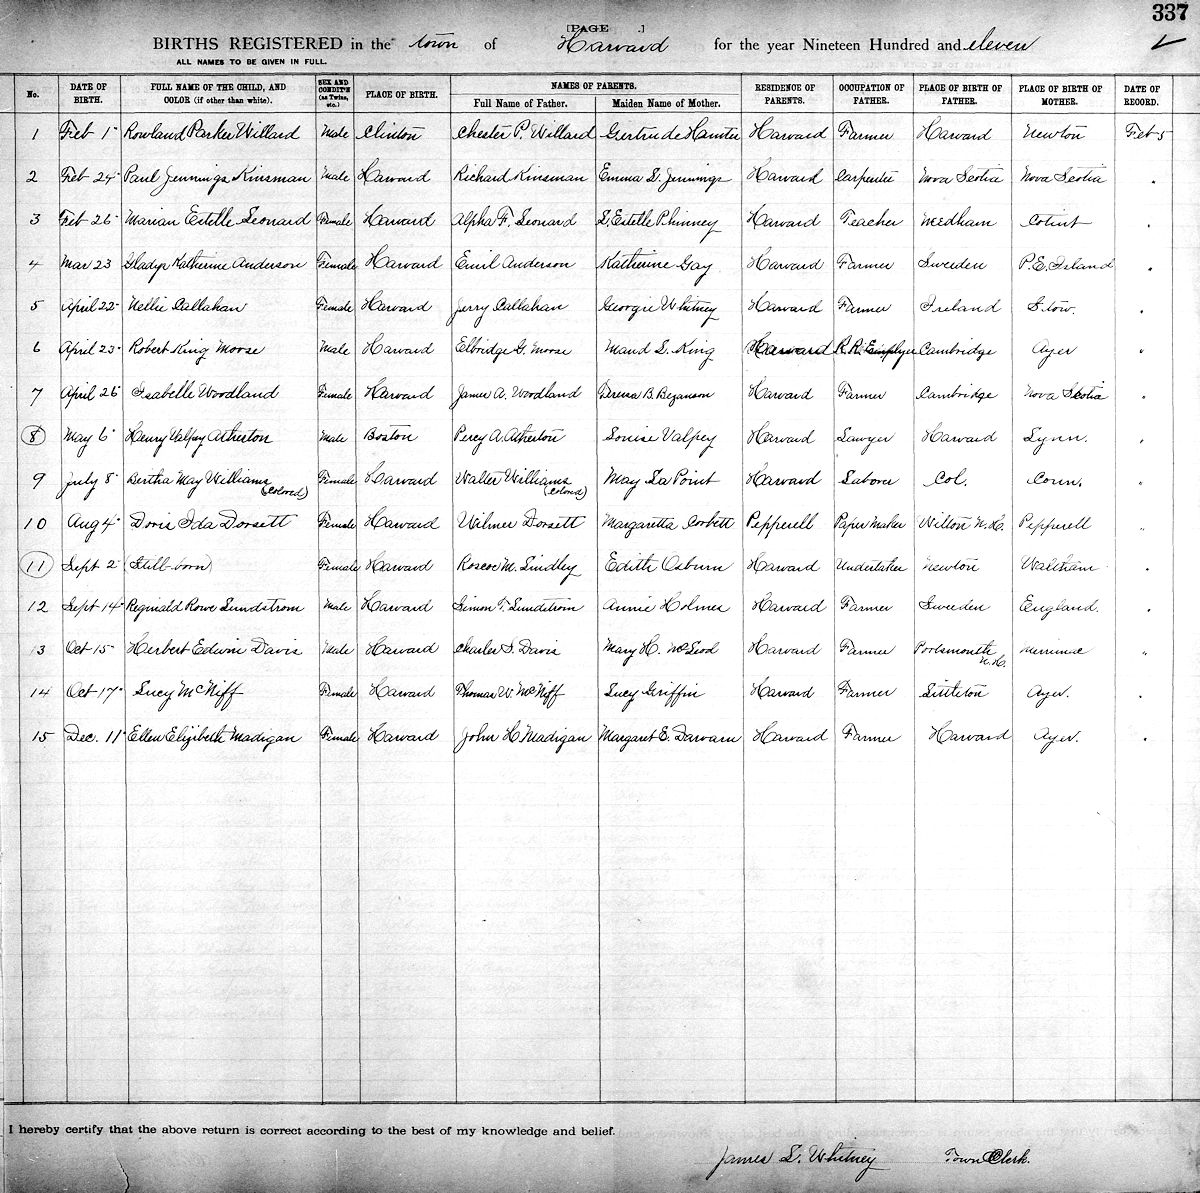 337
[PAGE .]
BIRTHS REGISTERED in the town of Harvard for the year Nineteen Hundred and eleven
ALL NAMES TO BE GIVEN IN FULL.
No. DATE OF BIRTH. FULL NAME OF THE CHILD, AND COLOR (if other than white). SEX AND CONDIT'N (as Twins, etc.) PLACE OF BIRTH. NAMES OF PARENTS. Full Name of Father. Maiden Name of Mother. RESIDENCE OF PARENTS. OCCUPATION OF FATHER. PLACE OF BIRTH OF FATHER. PLACE OF BIRTH OF MOTHER. DATE OF RECORD.
1 Feb 1 Rowland Parker Willard Male Clinton Chester P. Willard Gertrude Harvard Farmer Harvard Newton Feb 5
2 Feb 24 Paul Jennings Kinsman Male Harvard Richard Kinsman Emma L. Jennings Harvard Carpenter Nova Scotia Nova Scotia "
3 Feb 26 Marian Estelle Leonard Female Harvard Alpha F. Leonard L. Estelle Phinney Harvard Teacher Needham "
4 Mar 23 Gladys Katherine Anderson Female Harvard Emil Anderson Katherine Gay Harvard Farmer Sweeden P. E. Island "
5 April 22 Nellie Callahan Female Harvard Jerry Callahan Georgie Whitney Harvard Farmer Ireland Stow. "
6 April 23 Robert King Morse Male Harvard Elbridge G. Morse Maud L. King Harvard R. R. Employee Cambridge Ayer "
7 April 26 Isabelle Woodland Female Harvard James A. Woodland B. Bezanson Harvard Farmer Cambridge Nova Scotia "
8 May 6 Henry Valpey Atherton Male Boston Percy A. Atherton Louise Valpey Harvard Lawyer Harvard Lynn. "
9 July 8 Bertha May Williams (Colored) Female Harvard Walter Williams (Colored) May La Point Harvard Laborer Col. Conn. "
10 Aug 4 Doris Ida Dorsett Female Harvard Wilmer Dorsett Margaretta Corbett Pepperell Paper Maker Wilton N. H. Pepperell "
11 Sept 2 (Still-born) Female Harvard Roscoe M. Lindley Edith Osburn Harvard Undertaker Newton Waltham "
12 Sept 14 Reginald Rowe Sundstrom Male Harvard Simon T. Sundstrom Annie Holmes Harvard Farmer Sweeden England. "
13 Oct 15 Herbert Edwin Davis Male Harvard Charles S. Davis Mary H. McLeod Harvard Farmer Portsmouth N. H. Merrimac "
14 Oct 17 Lucy McNiff Female Harvard Thomas W. McNiff Lucy Griffin Harvard Farmer Littleton Ayer. "
15 Dec. 11 Ellen Elizibeth Madigan Female Harvard John H. Madigan Margaret E. Harvard Farmer Harvard Ayer. "
I hereby certify that the above return is correct according to the best of my knowledge and belief.
James L. Whitney Town Clerk.